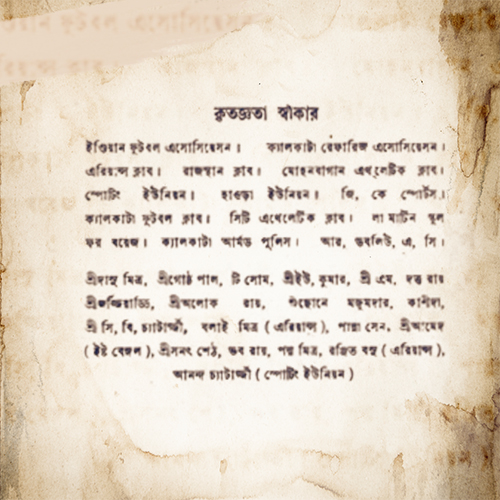 কৃতজ্ঞতা স্বীকার
ইণ্ডিয়ান ফুটবল এসোসিয়েসন। ক্যালকাটা রেফারিজ এসোসিয়েসন।
এরিয়ান্স ক্লাব। রাজস্থান ক্লাব। মোহনবাগান এথলেটিক ক্লাব।
স্পোর্টিং ইউনিয়ন। হাওড়া ইউনিয়ন। জি, কে স্পোর্টস।
ক্যালকাটা ফুটবল ক্লাব। সিটি এথেলেটিক ক্লাব। লা মার্টিন স্কুল
ফর বয়েজ। ক্যালকাটা আর্মড পুলিস। আর, ডবলিউ, এ, সি।
শ্রীদাসু মিত্র, শ্রীগোষ্ঠ পাল, টি সোম, শ্রীইউ, কুমার, শ্রী এম, দত্ত রায়
শ্রীঅলোক রায়, মজুমদার,
শ্রী সি, বি, চ্যাটার্জ্জী, বলাই মিত্র ( এরিয়ান্স ), পান্না সেন, শ্রীআমেদ
( ইষ্ট বেঙ্গল ), শ্রীসনৎ শেঠ, ভব রায়, পদ্ম মিত্র, রঞ্জিত বসু ( এরিয়ান্স ),
আনন্দ চ্যাটার্জ্জী ( স্পোর্টিং ইউনিয়ন )